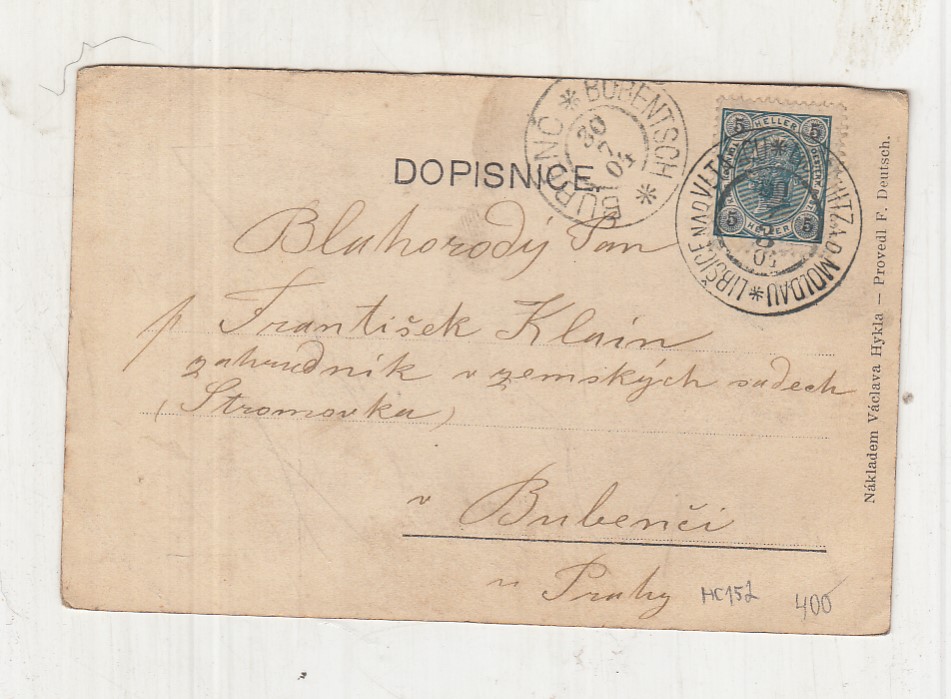 DOPISNICE.
BUBENČ * BUBENTSCH *
30
7
05
5 HELLER 5
5 HELLER 5
LIBŠICE NAD VLTAVOU * A.D. MOLDAU *
05
Blahorodý Pan
p František Klain
zahradník v zemských sadech
(Stromovka)
v Bubenči
u Prahy
MC152
400
Nákladem Václava Hykla — Provedl F. Deutsch.